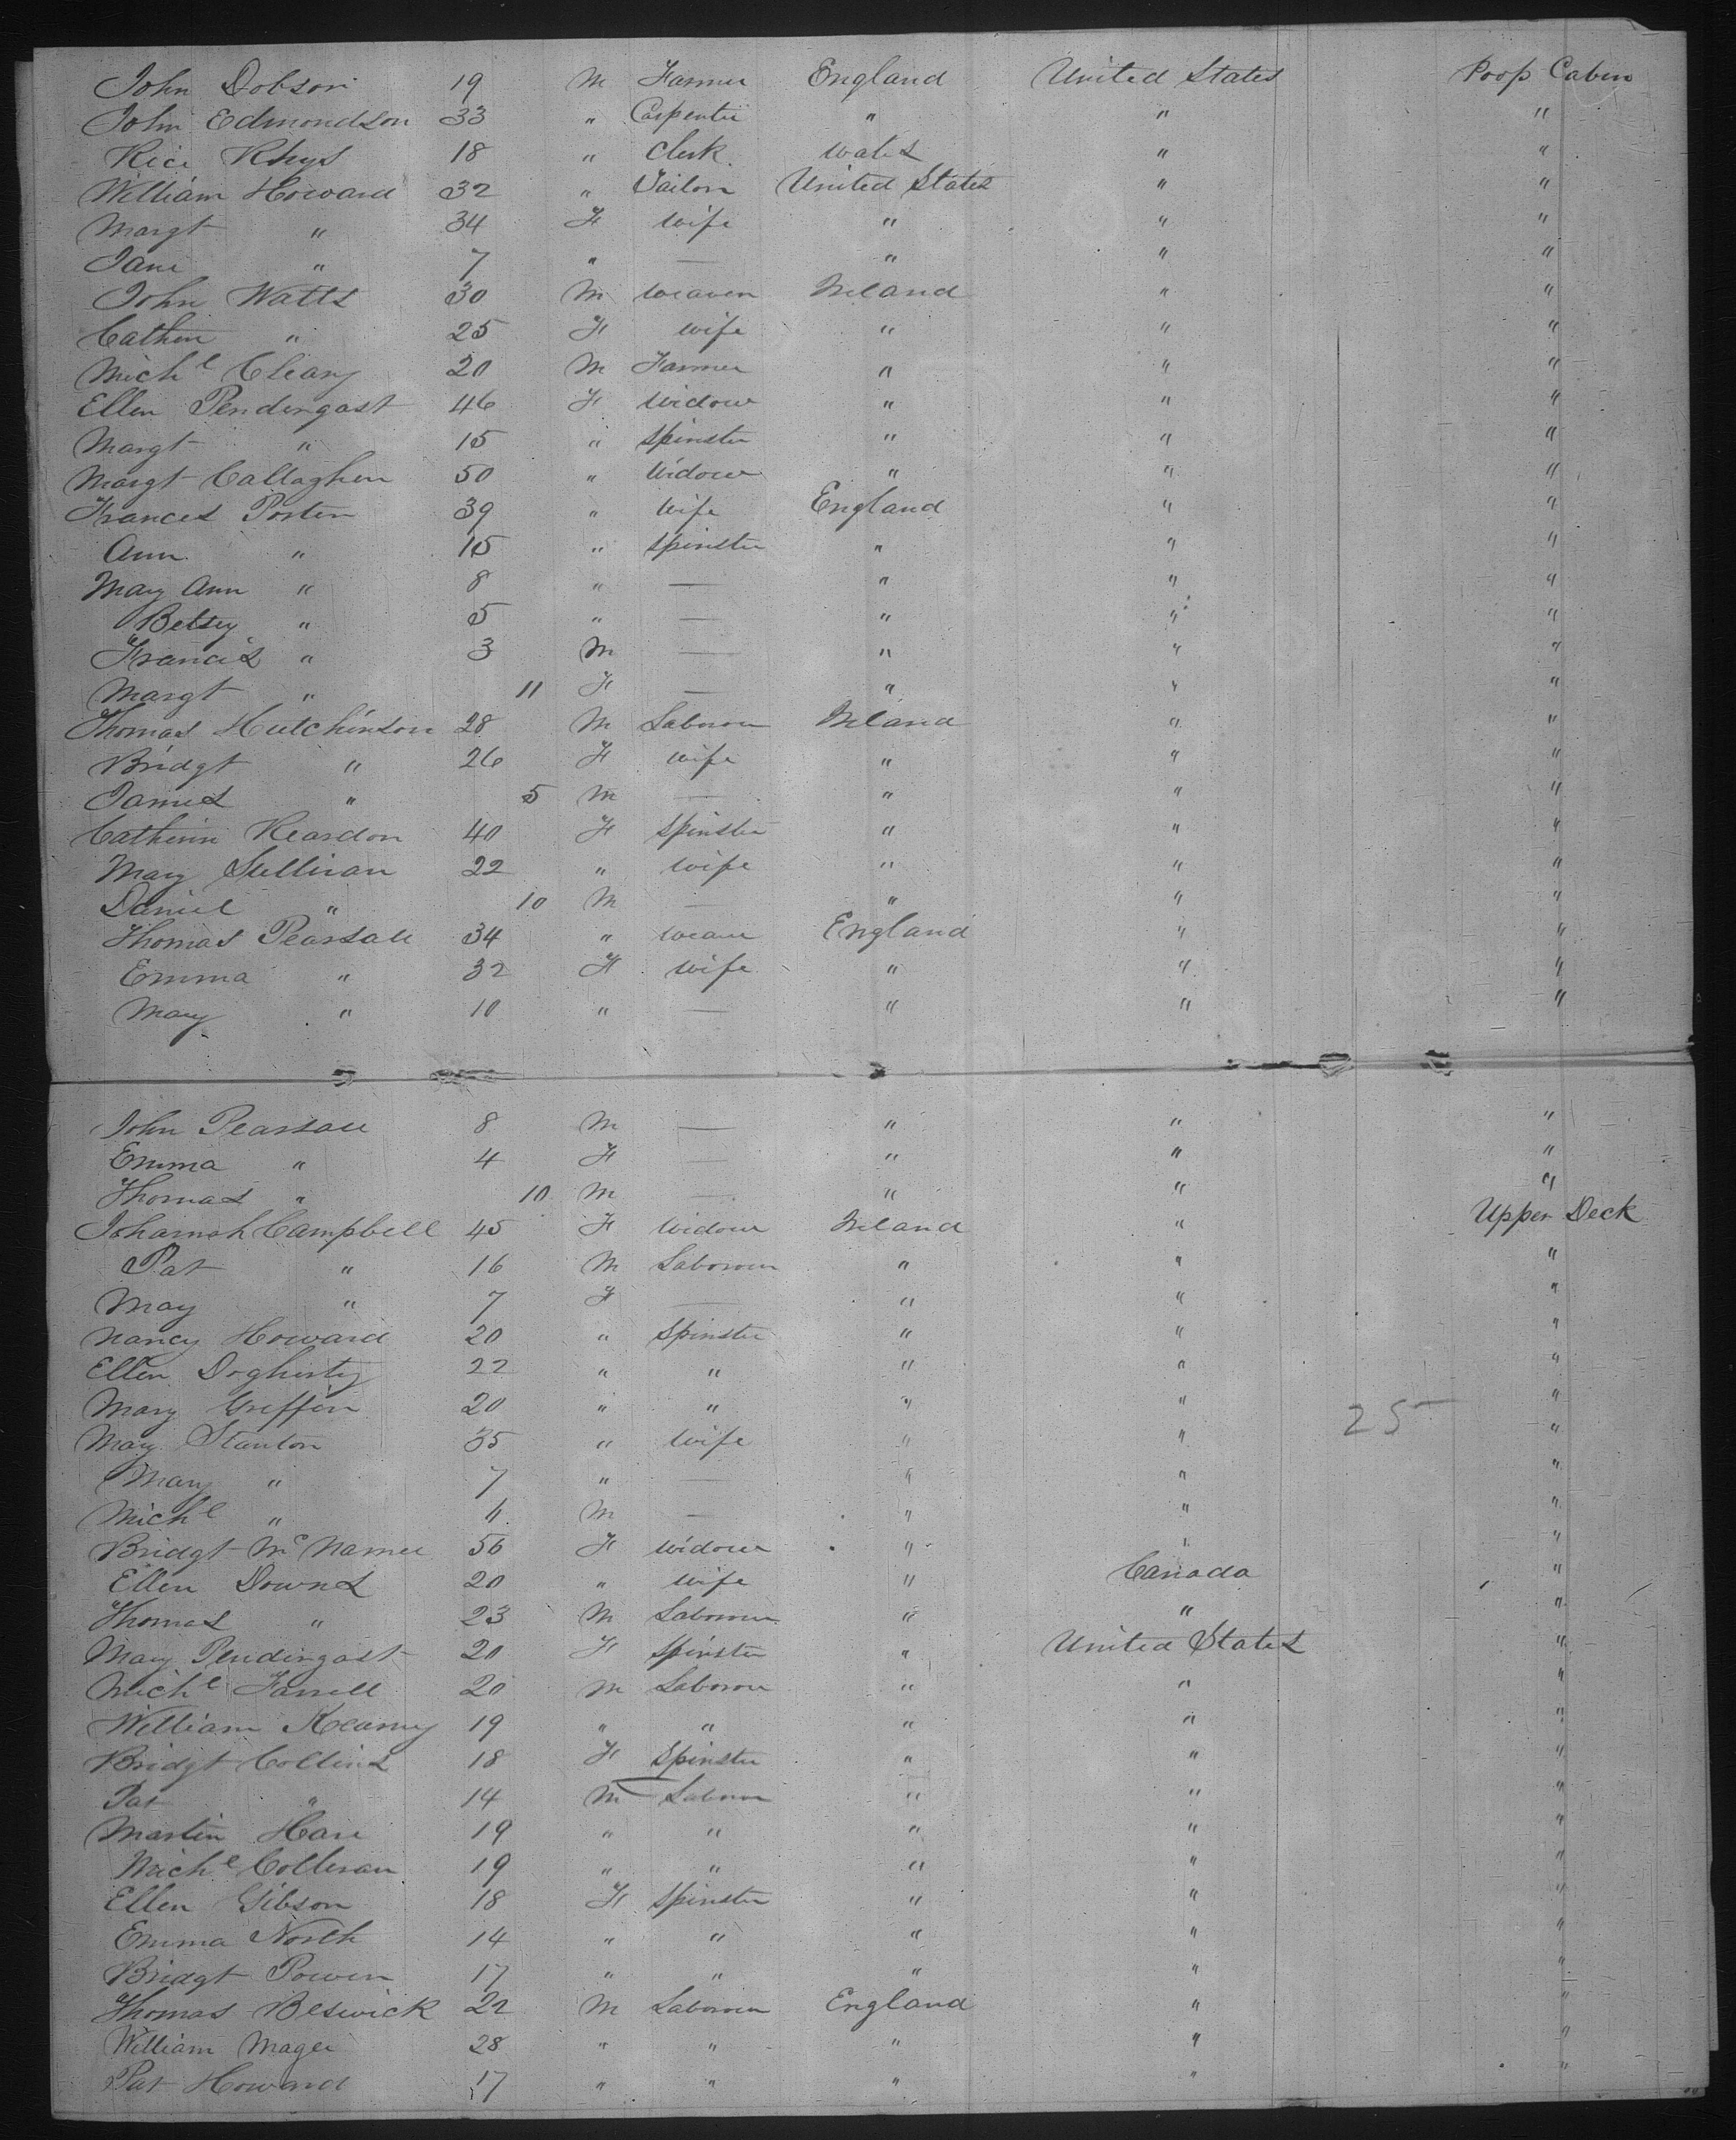 John Dobson 19 M Farmer England United States Poop Cabin
John Edmondson 33 " Carpenter " " "
Rice Rhys 18 " Clerk Wales " "
William Howard 32 " Tailor United States " "
Margt " 34 F wife " " "
Jane " 7 " — " " "
John Watts 30 M weaver Ireland " "
Cather " 25 F wife " " "
Michl Cleary 20 M Farmer " " "
Ellen Pendergast 46 F Widow " " "
Margt " 15 " Spinster " " "
Margt Callaghen 50 " Widow " " "
Frances Porter 39 " wife England " "
Ann " 15 " Spinster " " "
Mary Ann " 8 " — " " "
Betsey " 5 " — " " "
Francis " 3 M — " " "
Margt " 11 F — " " "
Thomas Hutchinson 28 M Laborer Ireland " "
Bridgt " 26 F wife " " "
James " 5 M — " " "
Catherin Reardon 40 F Spinster " " "
Mary Sullivan 22 " wife " " "
Daniel " 10 M — " " "
Thomas Pearsall 34 " England " "
Emma " 32 F wife " " "
Mary " 10 " — " " "
John Pearsall 8 M — " " "
Emma " 4 F — " " "
Thomas " 10 M — " " "
Johannah Campbell 45 F Widow Ireland " Upper Deck
Pat " 16 M Laborer " " "
May " 7 F — " " "
Nancy Howard 20 " Spinster " " "
Ellen Dogherty 22 " " " " "
Mary Griffin 20 " " " " "
25
Mary Stanton 35 " wife " " "
Mary " 7 " — " " "
Michl " M — " " "
Bridgt McNamee 56 F Widow " " "
Ellen Downs 20 " wife " Canada "
Thomas " 23 M Laborer " " "
Mary Pendergast 20 F Spinster " United States "
Michl Farrell 20 M Laborer " " "
William Kearney 19 " " " " "
Bridgt Collins 18 F Spinster " " "
Pat " 14 M Laborer " " "
Martin Hare 19 " " " " "
Michl 19 " " " " "
Ellen Gibson 18 F Spinster " " "
Emma North 14 " " " " "
Bridgt Power 17 " " " " "
Thomas Beswick 22 M Laborer England " "
William Magee 28 " " " " "
Pat Howard 17 " " " " "